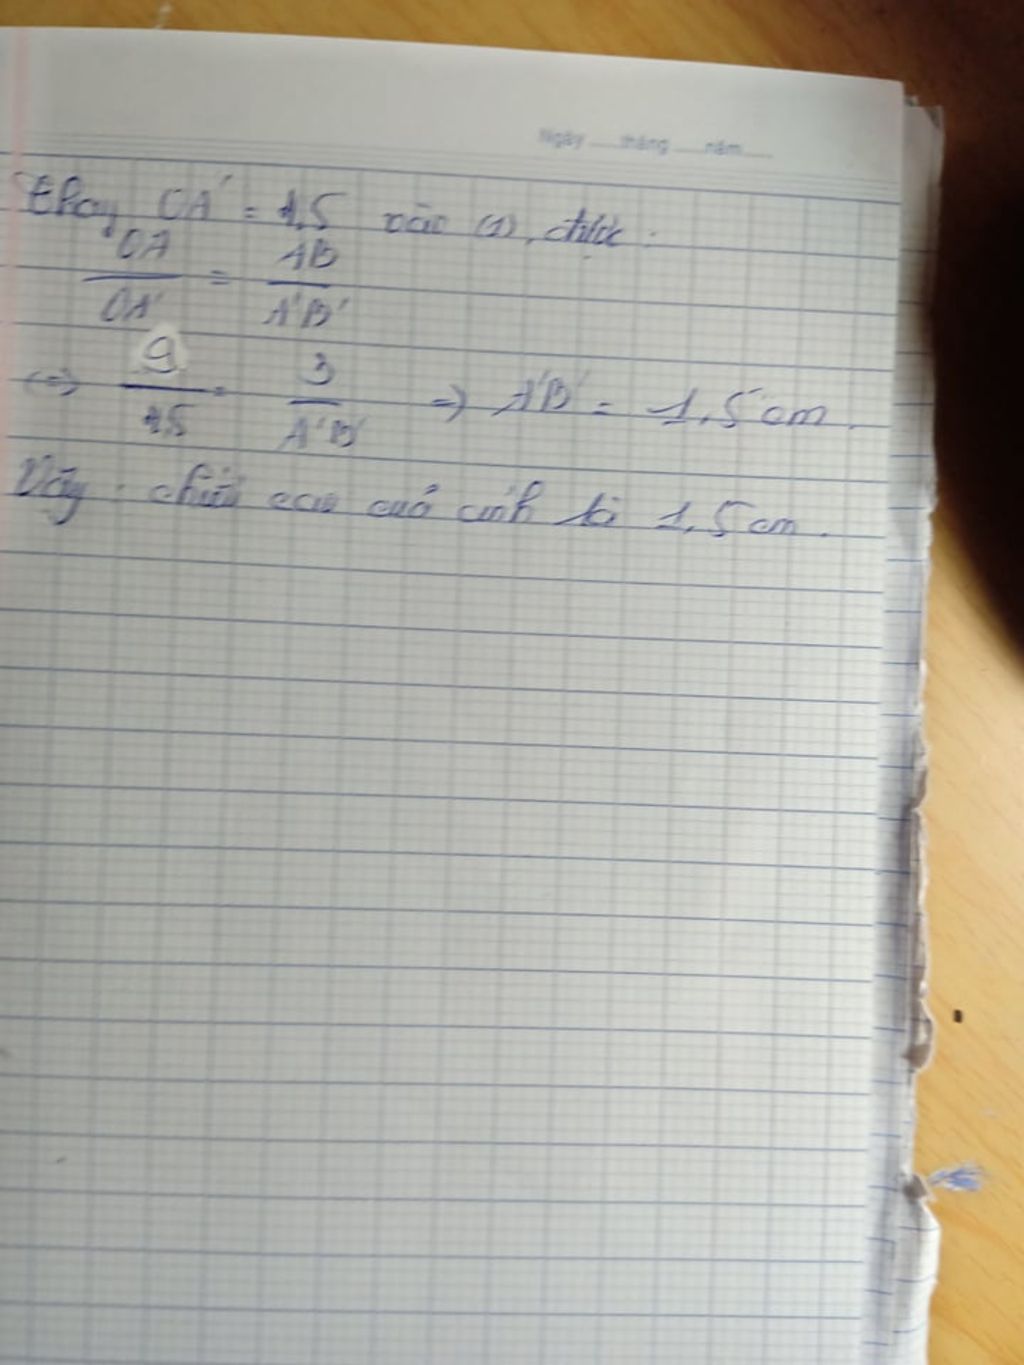 Ngày ..... tháng ..... năm .....
thay OA' = 4,5 vào (1), được:
OA / OA' = AB / A'B'
<=> 9 / 4,5 = 3 / A'B' => A'B' = 1,5 cm.
Vậy chiều cao của ảnh là 1,5 cm.